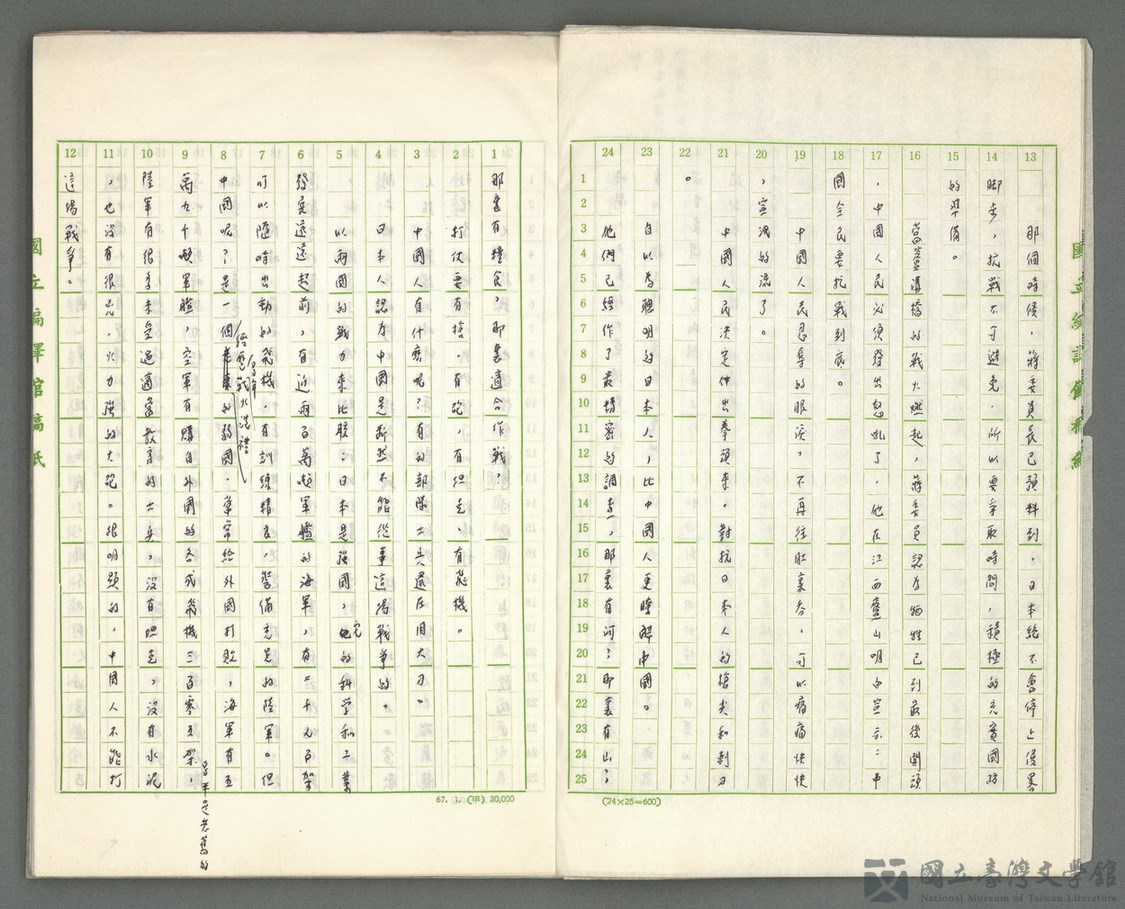 13 14 15 16 17 18 19 20 21 22 23 24
那個時候，蔣委員長已預料到，日本絕不會停止侵略
脚步，抗戰不可避免，所以要爭取時間，積極的充實國防
的準備。
當蘆溝橋的戰火燃起，蔣委員認為犧牲已到最後關頭
，中國人民必須發出怒吼了，他在江西廬山明白宣示：中
國全民要抗戰到底。
中國人民忍辱的眼淚，不再往肚裏吞，可以痛痛快快
，宣洩的流了。
中國人民決定伸出拳頭來。對抗日本人的槍尖和刺刀
。
自以為聰明的日本人，比中國人更瞭解中國。
他們已經作了最精密的調查，那裏有河？那裏有山？
1 2 3 4 5 6 7 8 9 10 11 12 13 14 15 16 17 18 19 20 21 22 23 24 25
(24×25=600)
國立編譯館稿紙
1 2 3 4 5 6 7 8 9 10 11 12
那裏有糧食，那裏適合作戰？
打仗要有槍，有砲，有坦克、有飛機。
中國人有什麼呢？有的部隊士兵還在用大刀。
日本人認為中國是斷然不能從事這場戰爭的。
，以兩國的戰力來比較：日本是強國，它的科學和工業
發展遠遠超前，有近兩百萬噸軍艦的海軍，有二千九百架
可以隨時出動的飛機，有訓練精良，裝備充足的陸軍。但
中國呢？是一個經歷百年戰火洗禮的弱國，常常給外國打敗，海軍有五
萬九千噸軍艦，空軍有購自外國的各式飛機三百零五架，多半是老舊的
陸軍有很多未受過適當教育的士兵，沒有坦克，沒有水泥
，也沒有很兇，火力強的大砲。很明顯的，中國人不能打
這場戰爭。
67. (甲) 30,000
國立編譯館稿紙
國立臺灣文學館
National Museum of Taiwan Literature